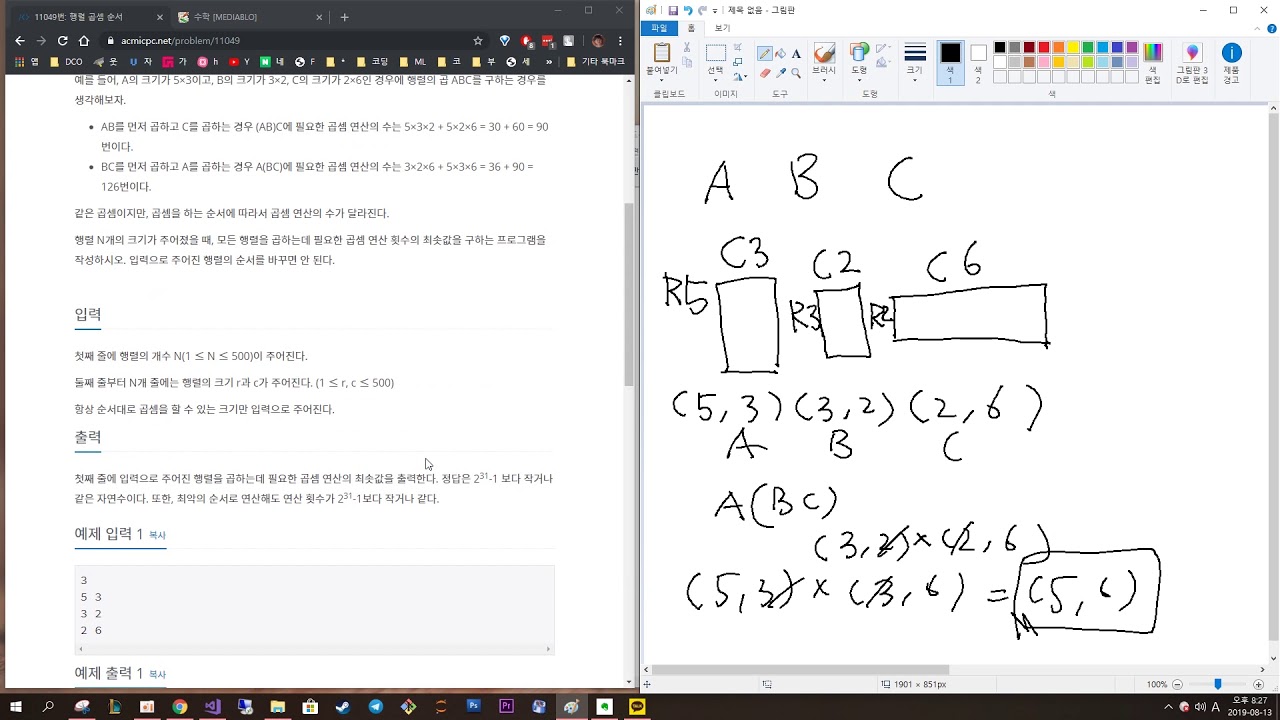 11049번: 행렬 곱셈 순서
수학 [MEDIABLO]
acmicpc.net/problem/11049
앱
DCO
기타 북마크
예를 들어, A의 크기가 5×3이고, B의 크기가 3×2, C의 크기가 2×6인 경우에 행렬의 곱 ABC를 구하는 경우를
생각해보자.
AB를 먼저 곱하고 C를 곱하는 경우 (AB)C에 필요한 곱셈 연산의 수는 5×3×2 + 5×2×6 = 30 + 60 = 90
번이다.
BC를 먼저 곱하고 A를 곱하는 경우 A(BC)에 필요한 곱셈 연산의 수는 3×2×6 + 5×3×6 = 36 + 90 =
126번이다.
같은 곱셈이지만, 곱셈을 하는 순서에 따라서 곱셈 연산의 수가 달라진다.
행렬 N개의 크기가 주어졌을 때, 모든 행렬을 곱하는데 필요한 곱셈 연산 횟수의 최솟값을 구하는 프로그램을
작성하시오. 입력으로 주어진 행렬의 순서를 바꾸면 안 된다.
입력
첫째 줄에 행렬의 개수 N(1 ≤ N ≤ 500)이 주어진다.
둘째 줄부터 N개 줄에는 행렬의 크기 r과 c가 주어진다. (1 ≤ r, c ≤ 500)
항상 순서대로 곱셈을 할 수 있는 크기만 입력으로 주어진다.
출력
첫째 줄에 입력으로 주어진 행렬을 곱하는데 필요한 곱셈 연산의 최솟값을 출력한다. 정답은 2^31-1 보다 작거나
같은 자연수이다. 또한, 최악의 순서로 연산해도 연산 횟수가 2^31-1보다 작거나 같다.
예제 입력 1 복사
3
5 3
3 2
2 6
예제 출력 1 복사
제목 없음 - 그림판
파일 홈 보기
붙여넣기 선택 브러시 도형 크기 색 1 색 2 색 편집 그림판 3D로 편집 제품 경고
클립보드 이미지 도구 도형 색
A B C
C3 C2 C6
R5 R3 R2
(5, 3) (3, 2) (2, 6)
A B C
A(BC)
(3, 2) × (2, 6)
(5, 3) × (3, 6) = (5, 6)
1901 × 851px
100%
A
오후 8:27
2019-08-13